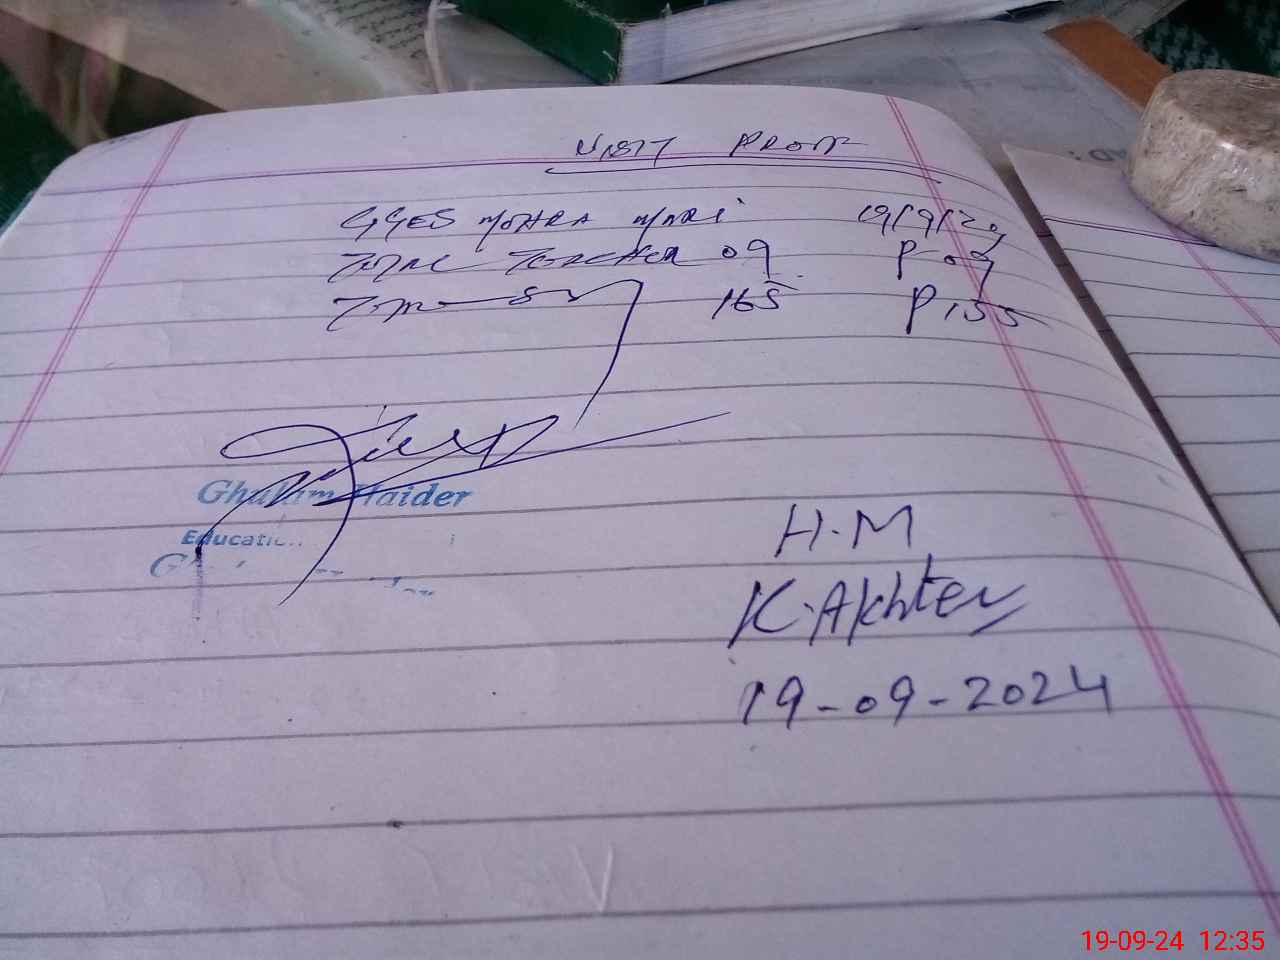 VISIT PROOF
GGES MOHRA MARI 19/9/24
TOTAL TEACHER 09 P 09
TOTAL ST 165 P 155
Ghulam Haider
Education
H.M
K.Akhter
19-09-2024
19-09-24 12:35